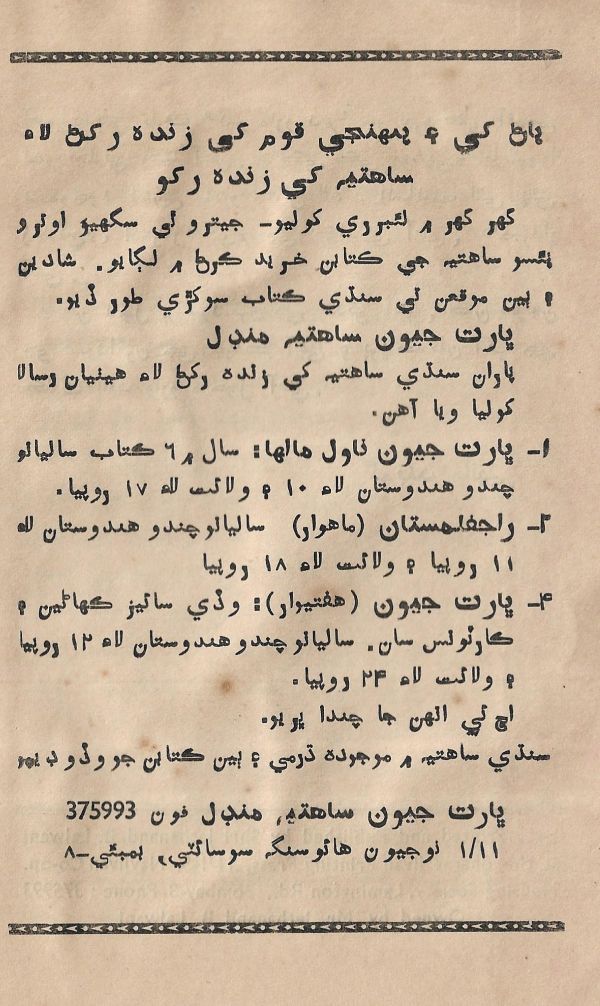 پاڻ کي ۽ پنھنجي قوم کي زنده رکڻ لاءِ
ساهتيہ کي زنده رکو
گهر گهر ۾ لئبرري کوليو۔ جيترو ٿي سگهيوَ اوترو
پئسو ساهتيہ جي ڪتابن خريد ڪرڻ ۾ لڳايو. شادين
۽ ٻين موقعن تي سنڌي ڪتاب سوکڙي طور ڏيو.
ڀارت جيون ساهتيہ منڊل
پاران سنڌي ساهتيہ کي زنده رکڻ لاءِ هيٺيان رسالا
کوليا ويا آهن.
۱۔ ڀارت جيون ناول مالها: سال ۾ ٦ ڪتاب ساليانو
چندو هندوستان لاءِ ۱۰ ۽ ولائت لاءِ ۱۷ روپيا.
۲۔ راجفلمستان (ماهوار) ساليانو چندو هندوستان لاءِ
۱۱ روپيا ۽ ولائت لاءِ ۱۸ روپيا
۴۔ ڀارت جيون (هفتيوار): وڏي سائيز ڪهاڻين ۽
ڪارٽونس سان. ساليانو چندو هندوستان لاءِ ۱۲ روپيا
۽ ولائت لاءِ ۲۴ روپيا.
اڄ ئي انهن جا چندا ڀريو.
سنڌي ساهتيہ ۾ موجوده ڌرمي ۽ ٻين ڪتابن جو وڏو ڊيپو
ڀارت جيون ساهتيہ منڊل فون 375993
۱/۱۱ نوجيون هائوسنگ سوسائٽي، بمبئي–۸